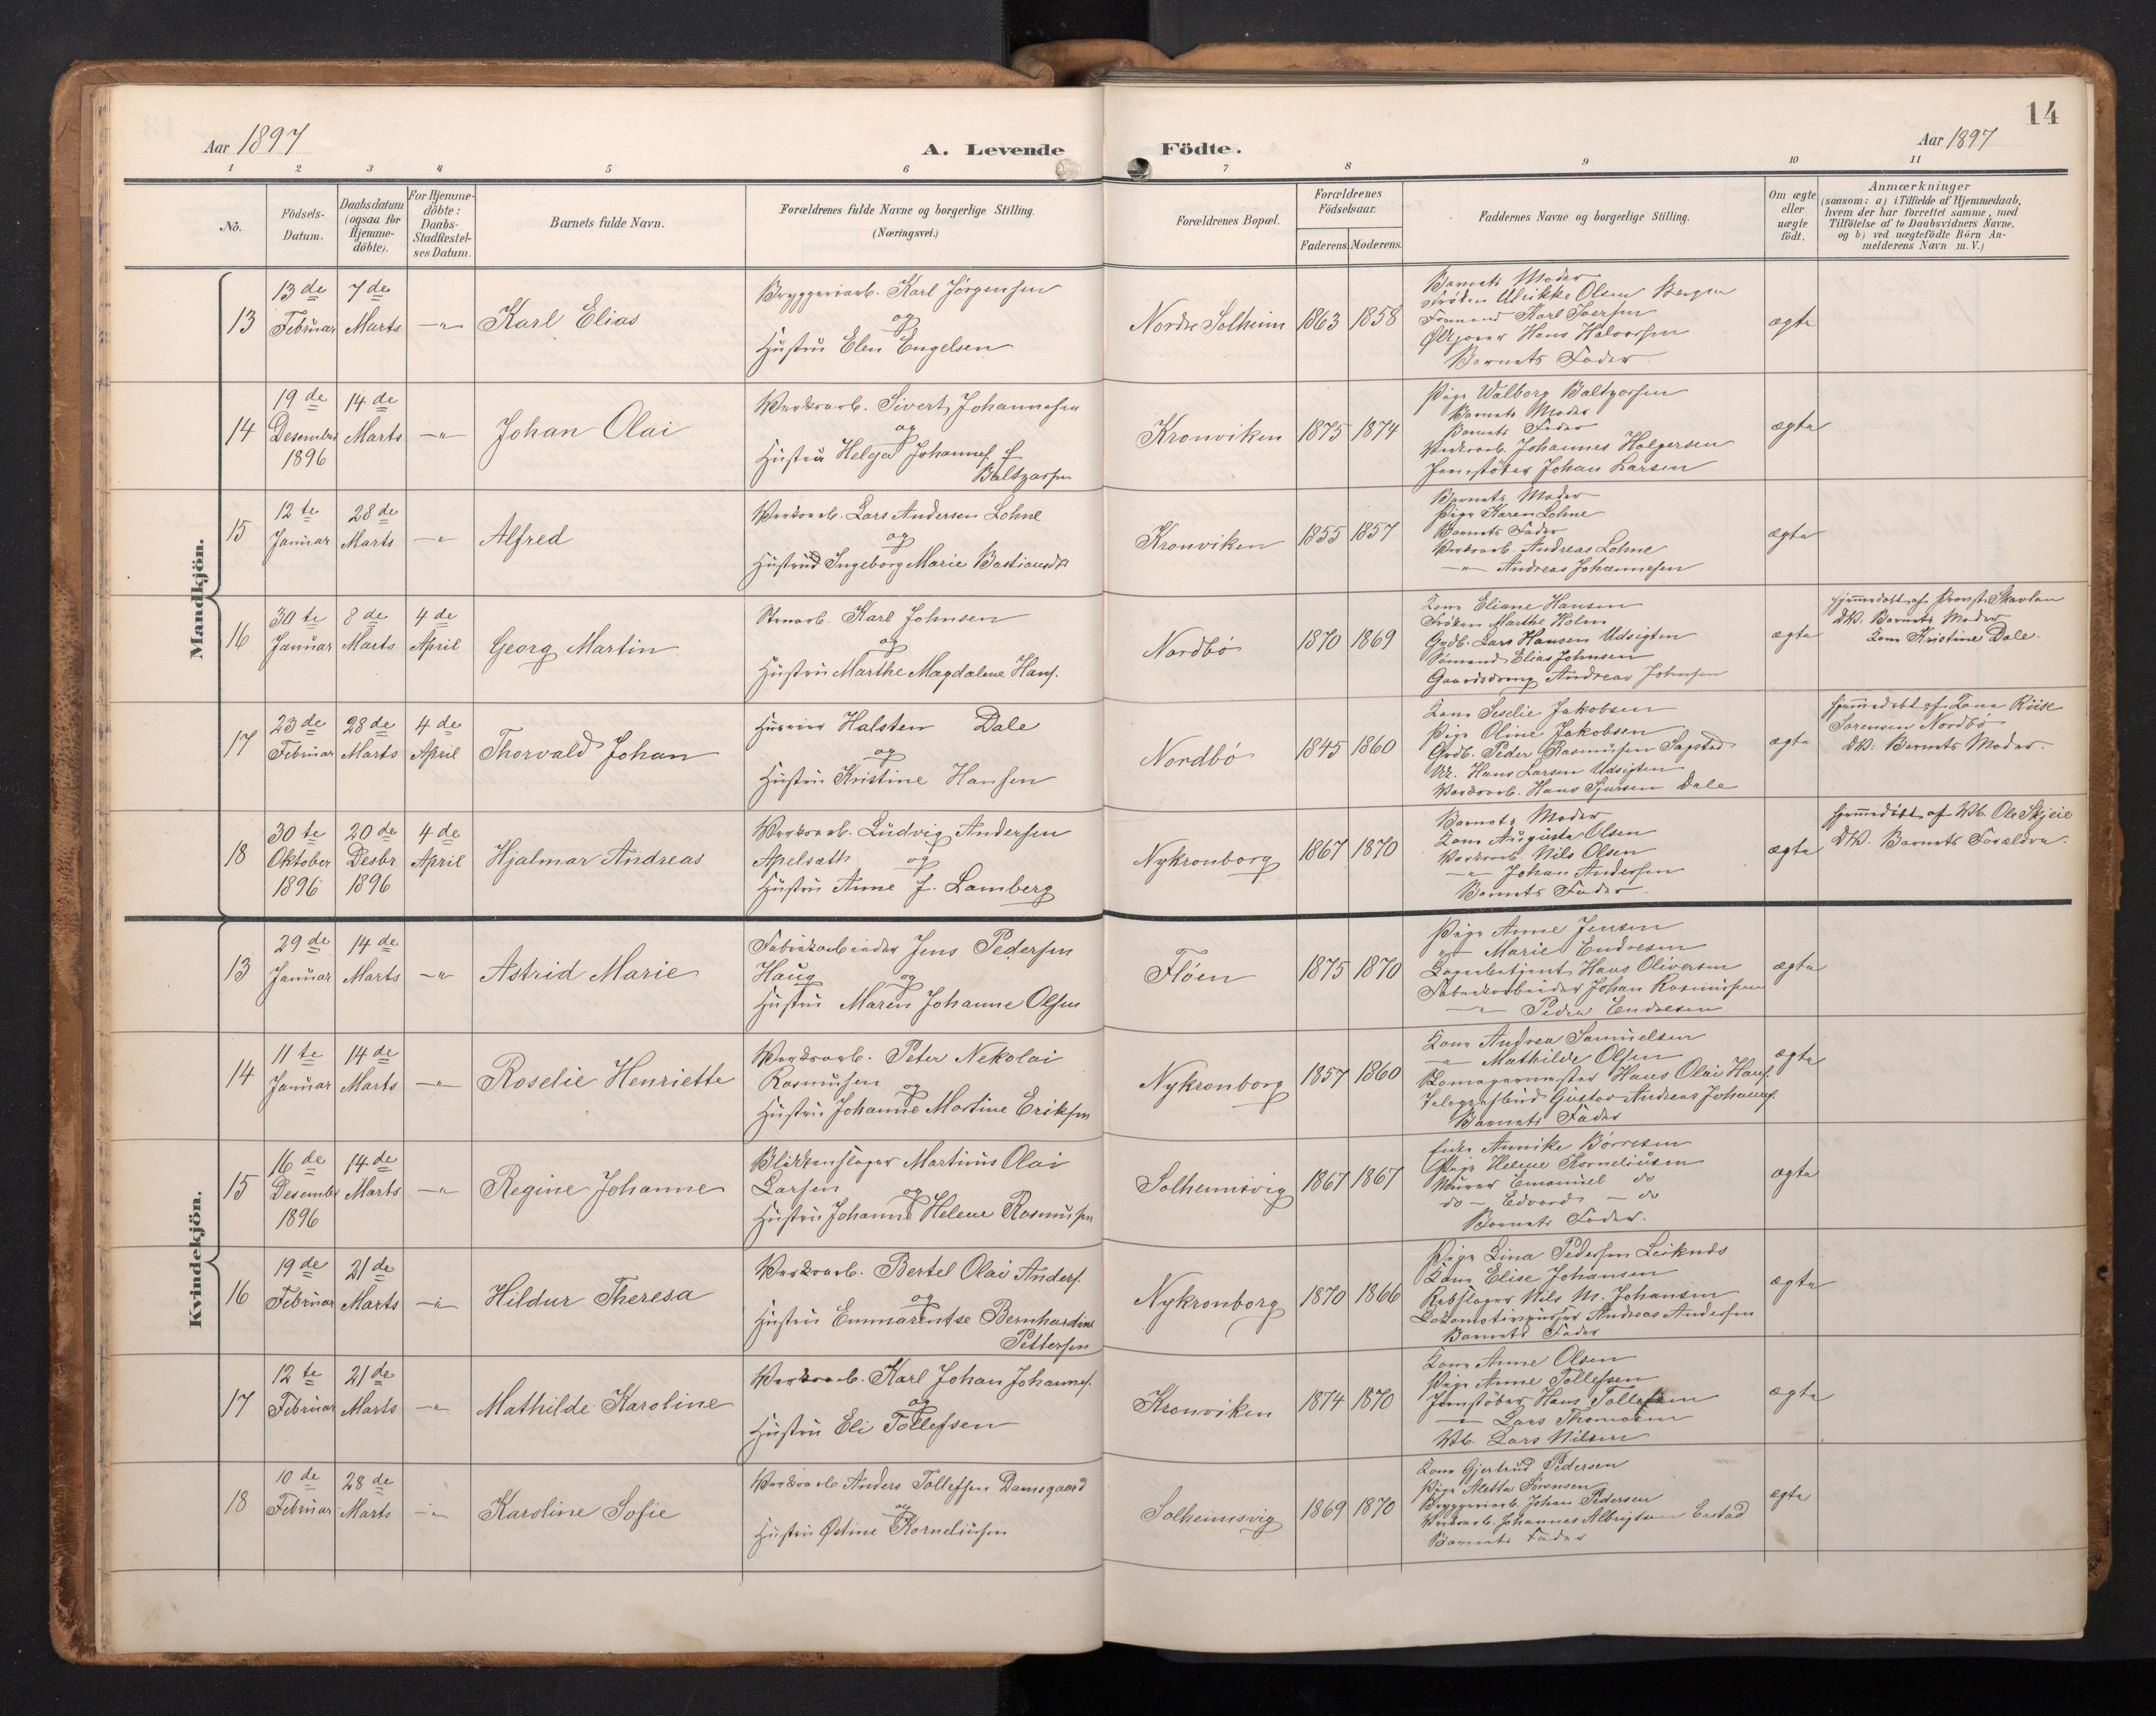 14
Aar 1897
A. Levende Födte.
Aar 1897
1 2 3 4 5 6 7 8 9 10 11
No.
Födsels-Datum.
Daabsdatum (ogsaa for Hjemme-döbte).
For Hjemme-döbte: Daabs-Stadfæstel-ses Datum.
Barnets fulde Navn.
Forældrenes fulde Navne og borgerlige Stilling.
(Næringsvei.)
Forældrenes Bopæl.
Forældrenes Födselsaar.
Faderens. Moderens.
Faddernes Navne og borgerlige Stilling.
Om ægte eller uægte födt.
Anmærkninger
(saasom: a) i Tilfælde af Hjemmedaab,
hvem der har forrettet samme, med
Tilföielse af to Daabsvidners Navne.
og b) ved uægtefödte Börn An-
melderens Navn m. V.)
Mandkjön.
13
13de Februar
7de Marts
-"-
Karl Elias
Bryggeriarb. Karl Jørgensen
og
Hustru Elen Engelsen
Nordre Solheim
1863 1858
Barnets Moder
Frøken Ulrikke Olsen Bergen
Formand Karl Iversen
Hans Halvorsen
Barnets Fader
ægte
14
19de Desember 1896
14de Marts
-"-
Johan Olai
Verksarb. Sivert Johannesen
og
Hustru Helga Johannes. f.
Baltzarsen
Kronviken
1875 1874
Pige Walborg Baltzarsen
Barnets Moder
Barnets Fader
Verksarb. Johannes Holgersen
Jernstöber Johan Larsen
ægte
15
12te Januar
28de Marts
-"-
Alfred
Verksarb. Lars Andersen Lohne
og
Hustru Ingeborg Marie Bastiansdt
Kronviken
1855 1857
Barnets Moder
Pige Karen Lohne
Barnets Fader
Verksarb. Andreas Lohne
-"- Andreas Johannesen
ægte
16
30te Januar
8de Marts
4de April
Georg Martin
Stenarb. Karl Johnsen
og
Hustru Marthe Magdalene Hans.
Nordbö
1870 1869
Kone Eliane Hansen
Frøken Marthe Holm
Grdb. Lars Hansen Udsigten
Sömand Elias Johnsen
Gaardsdreng Andreas Johnsen
ægte
Hjemmedöbt af Provst Skavlan
DV. Barnets Moder
Kone Kristine Dale.
17
23de Februar
28de Marts
4de April
Thorvald Johan
Halsten Dale
og
Hustru Kristine Hansen
Nordbö
1845 1860
Kone Seselie Jakobsen
Pige Oline Jakobsen
Grdb. Peder Rasmussen Sagstad
Hans Larsen Udsigten
Verksarb. Hans Sjursen Dale
ægte
Hjemmedöbt af Kone Röise
Sørensen Nordbö
DV. Barnets Moder.
18
30te Oktober 1896
20de Desbr 1896
4de April
Hjalmar Andreas
Verksarb. Ludvig Andersen
Apelsæth og
Hustru Anne f. Lamberg
Nykronborg
1867 1870
Barnets Moder
Kone Augusta Olsen
Verksarb. Nils Olsen
-"- Johan Andersen
Barnets Fader
ægte
Hjemmedöbt af Vb. Ole Skjeie
DV. Barnets Forældre.
Kvindekjön.
13
29de Januar
14de Marts
-"-
Astrid Marie
Fabrikarbeider Jens Pedersen
Haug og
Hustru Maren Johanne Olsen
Flöen
1875 1870
Pige Anne Jensen
-"- Marie Endresen
Lagerbetjent Hans Oliversen
Fabrikarbeider Johan Rasmussen
-"- Peder Endresen
ægte
14
11te Januar
14de Marts
-"-
Roselie Henriette
Verksarb. Peter Nekolai
Rasmussen og
Hustru Johanne Martine Eriksen
Nykronborg
1857 1860
Kone Andrea Samuelsen
-"- Mathilde Olsen
Skomagermester Hans Olai Hans.
Telegrafbud Gustav Andreas Johannes.
Barnets Fader
ægte
15
16de Desember 1896
14de Marts
-"-
Regine Johanne
Blikkenslager Martinus Olai
Larsen og
Hustru Johanne Helene Rasmussen
Solheimsvig
1867 1867
Enke Annike Börresen
Pige Helene Korneliusen
Murer Emanuel do
do - Edvard - do
Barnets Fader.
ægte
16
19de Februar
21de Marts
-"-
Hildur Theresa
Verksarb. Bertel Olai Anders.
og
Hustru Emmarentse Bernhardine
Pettersen
Nykronborg
1870 1866
Pige Lina Pedersen Leiknes
Kone Elise Johansen
Rebslager Nils M. Johansen
Lokomotivpudser Andreas Andersen
Barnets Fader
ægte
17
12te Februar
21de Marts
-"-
Mathilde Karoline
Verksarb. Karl Johan Johannes.
og
Hustru Eli Tollefsen
Kronviken
1874 1870
Kone Anne Olsen
Pige Anne Tollefsen
Jernstöber Hans Tollefsen
-"- Lars Thomasen
Vb. Lars Nilsen
ægte
18
10de Februar
28de Marts
-"-
Karoline Sofie
Verksarb Anders Tollefsen Damsgaard
og
Hustru Østine Korneliusen
Solheimsvig
1869 1870
Kone Gjertrud Pedersen
Pige Aletta Sörensen
Bryggeriarb. Johan Pedersen
Verksarb. Johannes Albrigtsen Erstad
Barnets Fader
ægte